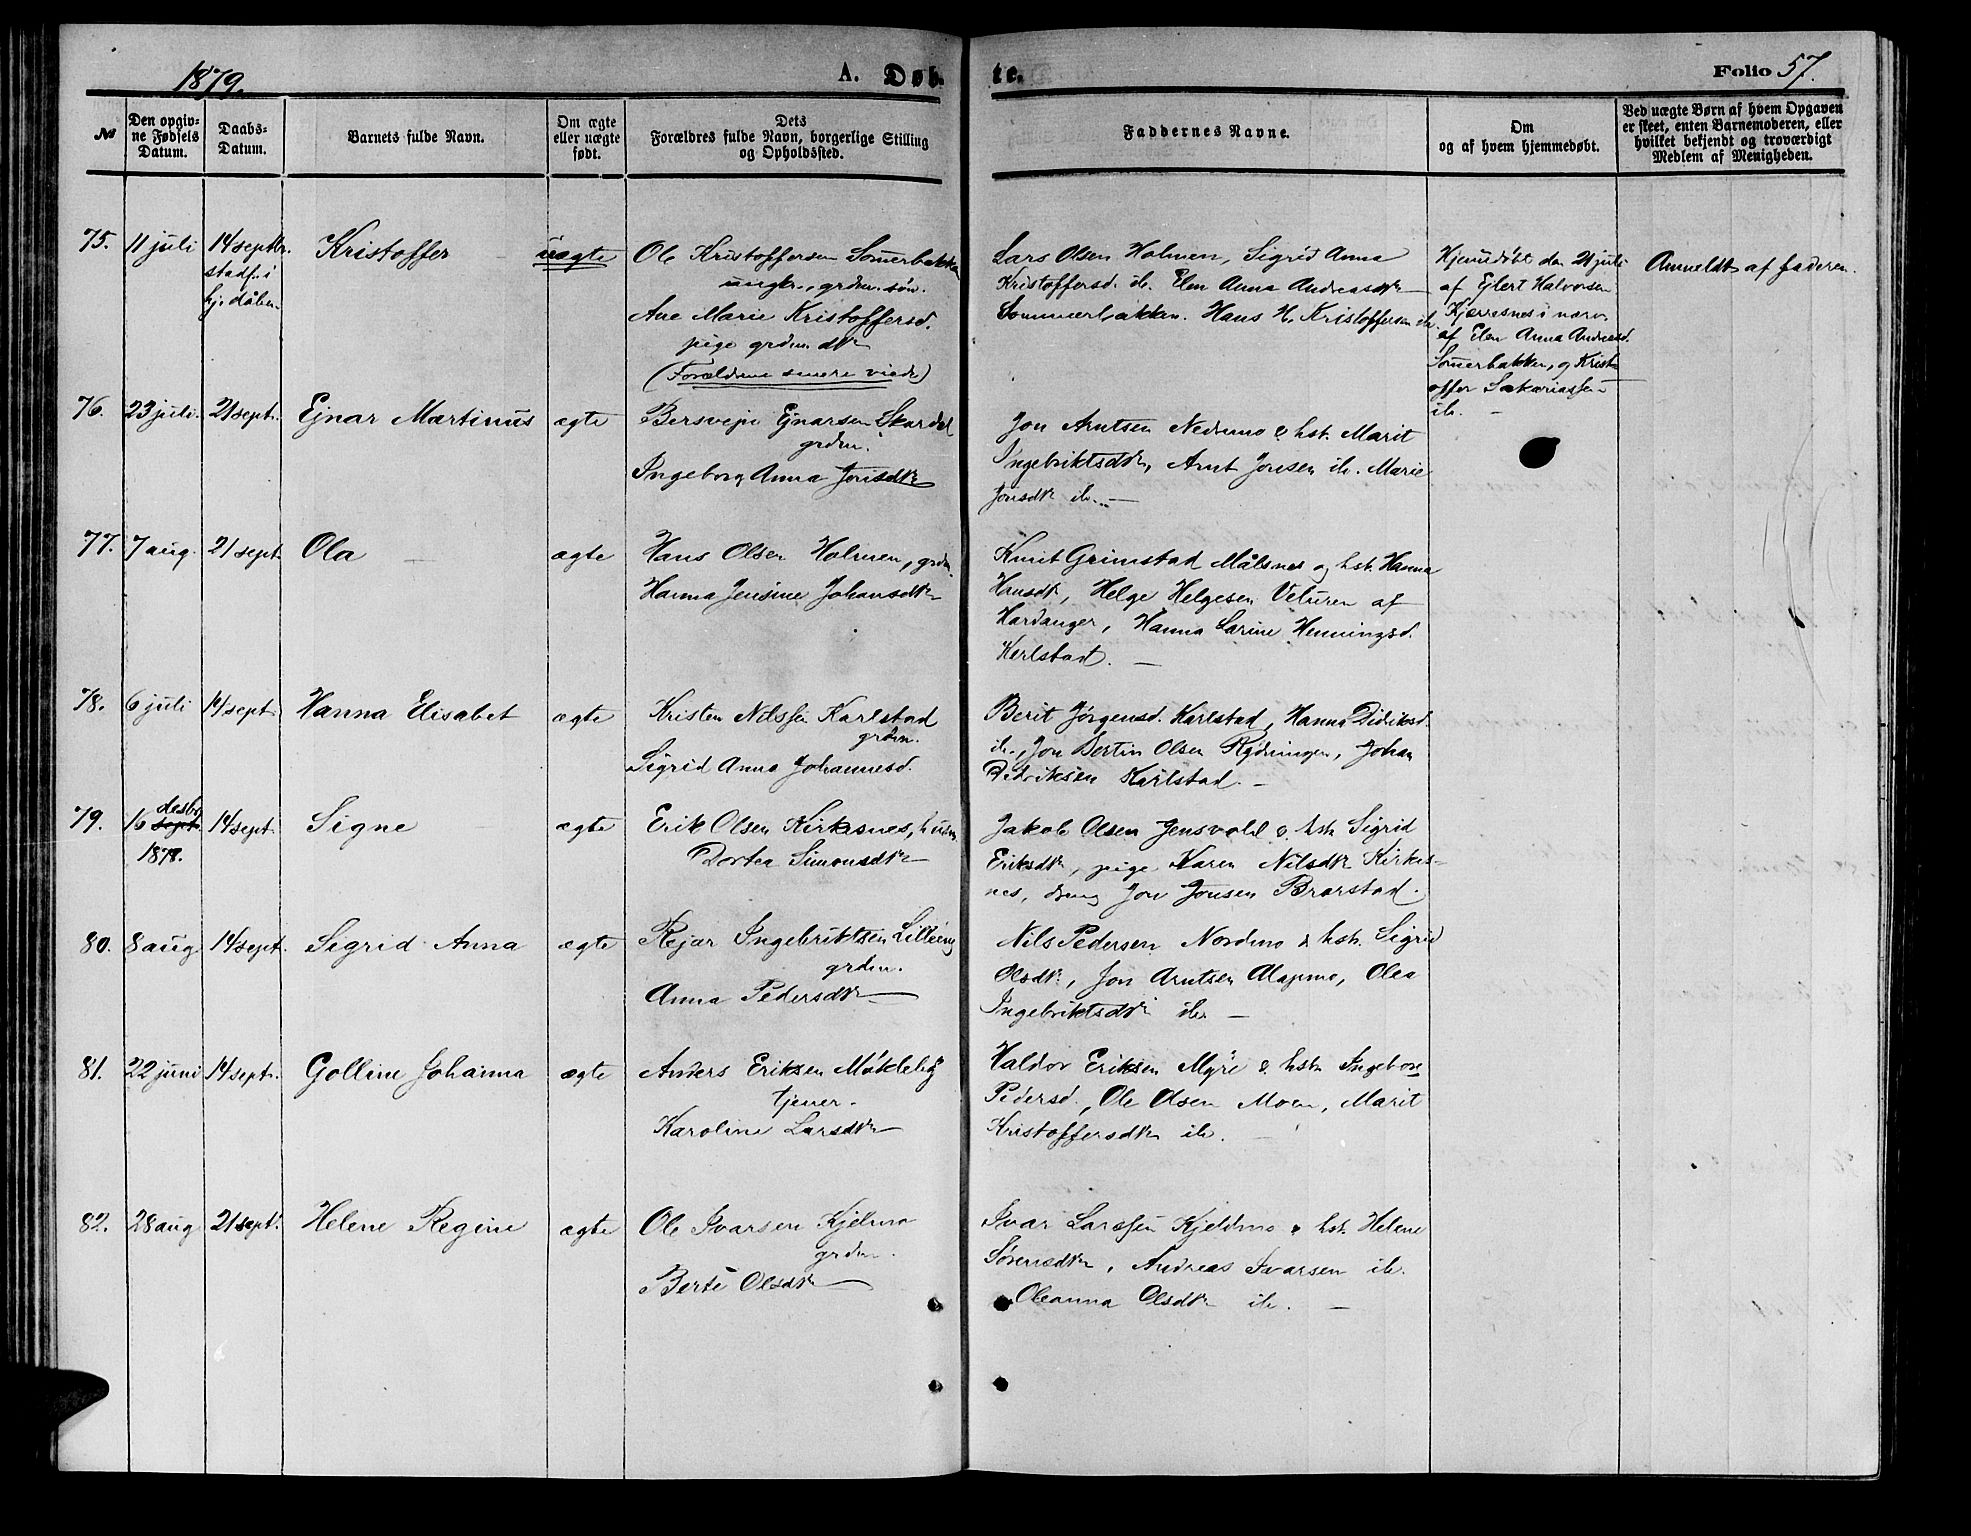 1879.
A. Døb-
te.
Folio 57.
No
Den opgiv-
ne Fødsels
Datum.
Daabs-
Datum.
Barnets fulde Navn.
Om ægte
eller uægte
født.
Dets
Forældres fulde Navn, borgerlige Stilling
og Opholdssted.
Faddernes Navne.
Om
og af hvem hjemmedøbt.
Ved uægte Børn af hvem Opgaven
er skeet, enten Barnemoderen, eller
hvilket bekjendt og troværdigt
Medlem af Menigheden.
75. 11 juli 14 septbr.
stadf. i
hj. dåben
Kristoffer
uægte
Ole Kristoffersen Somerbakken
ungk., grdm. søn.
Ane Marie Kristoffersd.
pige grdm. dtr
(Forældrene senere viede)
Lars Olsen Holmen, Sigrid Anna
Kristoffersd. ib. Elen Anna Andreasdtr
Sommerbakken. Hans H. Kristoffersen ib.
Hjemdöbt den 21 juli
af Ejlert Halvorsen
Kjerresnes i nærv.
af Elen Anna Andreasd.
Somerbakken, og Krist-
offer Sakariassen
ib. -
Anmeldt af faderen.
76. 23 juli. 21 sept. Ejnar Martinus ægte
Bersvejn Ejnarsen Skardal
grdm.
Ingeborg Anna Jonsdtr
Jon Arntsen Nedrmo & hst. Marit
Ingebriktsdtr, Arnt Jonsen ib. Marie
Jonsdtr ib. -
77. 7 aug. 21 sept. Ola - ægte
Hans Olsen Holmen, grdm.
Hanna Jensine Johansdtr
Knut Grimstad Målsnes og hst. Hanna
Hansdtr, Helge Helgesen Veturen af
Hardanger, Hanna Larine Henningsd.
Kerlstad. -
78. 6 juli 14 sept. Hanna Elisabet ægte
Kristen Nilssen Karlstad
grdm.
Sigrid Anna Johannesd.
Berit Jørgensd. Karlstad, Hanna Didriksd.
ib., Jon Bertin Olsen Rydningen, Johan
Didriksen Karlstad. -
79. 16 sept. desbr
1878.
14 sept. Signe - ægte
Erik Olsen Kirkesnes, husm.
Dortea Simonsdtr
Jakob Olsen Jensvold & hst. Sigrid
Eriksdtr, pige Karen Nilsdtr Kirkes-
nes, dreng Jon Jonsen Brarstad.
80. 8 aug 14 sept. Sigrid Anna ægte
Rejar Ingebriktsen Lilleeng
grdm.
Anna Pedersdtr
Nils Pedersen Nordmo & hst. Sigrid
Olsdtr, Jon Arntsen Alapmo, Olea
Ingebriktsdtr ib. -
81. 22 juni 14 sept. Golline Johanna ægte
Anders Eriksen Möklebÿ
tjener.
Karoline Larsdtr
Haldor Eriksen Myre & hst. Ingebor
Pedersd., Ole Olsen Moen, Marit
Kristoffersdtr ib. -
82. 28 aug 21 sept. Helene Regine ægte
Ole Ivarsen Kjelmo
grdm.
Berte Olsdtr
Ivar Larssen Kjeldmo & hst. Helene
Sørensdtr, Andreas Ivarsen ib.
Oleanna Olsdtr ib. -